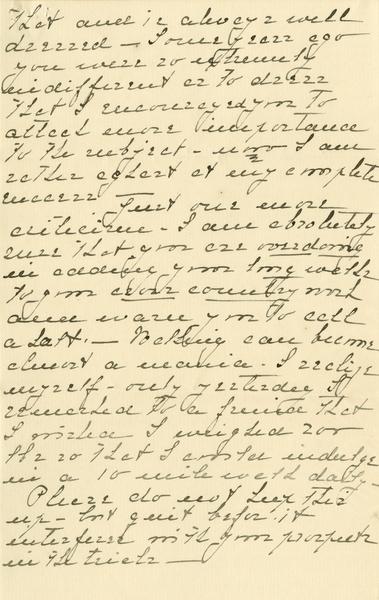 that and is always well
dressed — Some years ago
you were so extremely
indifferent as to dress
that I encouraged you to
attach more importance
to the subject — now I am
rather aghast at my complete
success — Just one more
criticism — I am absolutely
sure that you are overdoing
in adding your long walks
to your cross country work
and warn you to call
a halt. — Walking can become
almost a mania — I realize
myself — only yesterday I
remarked to a friend that
I wished I weighed 200
lbs so that I could indulge
in a 10 mile walk daily —
Please do not keep this
up — but quit before it
interferes with your prospects
in the track —